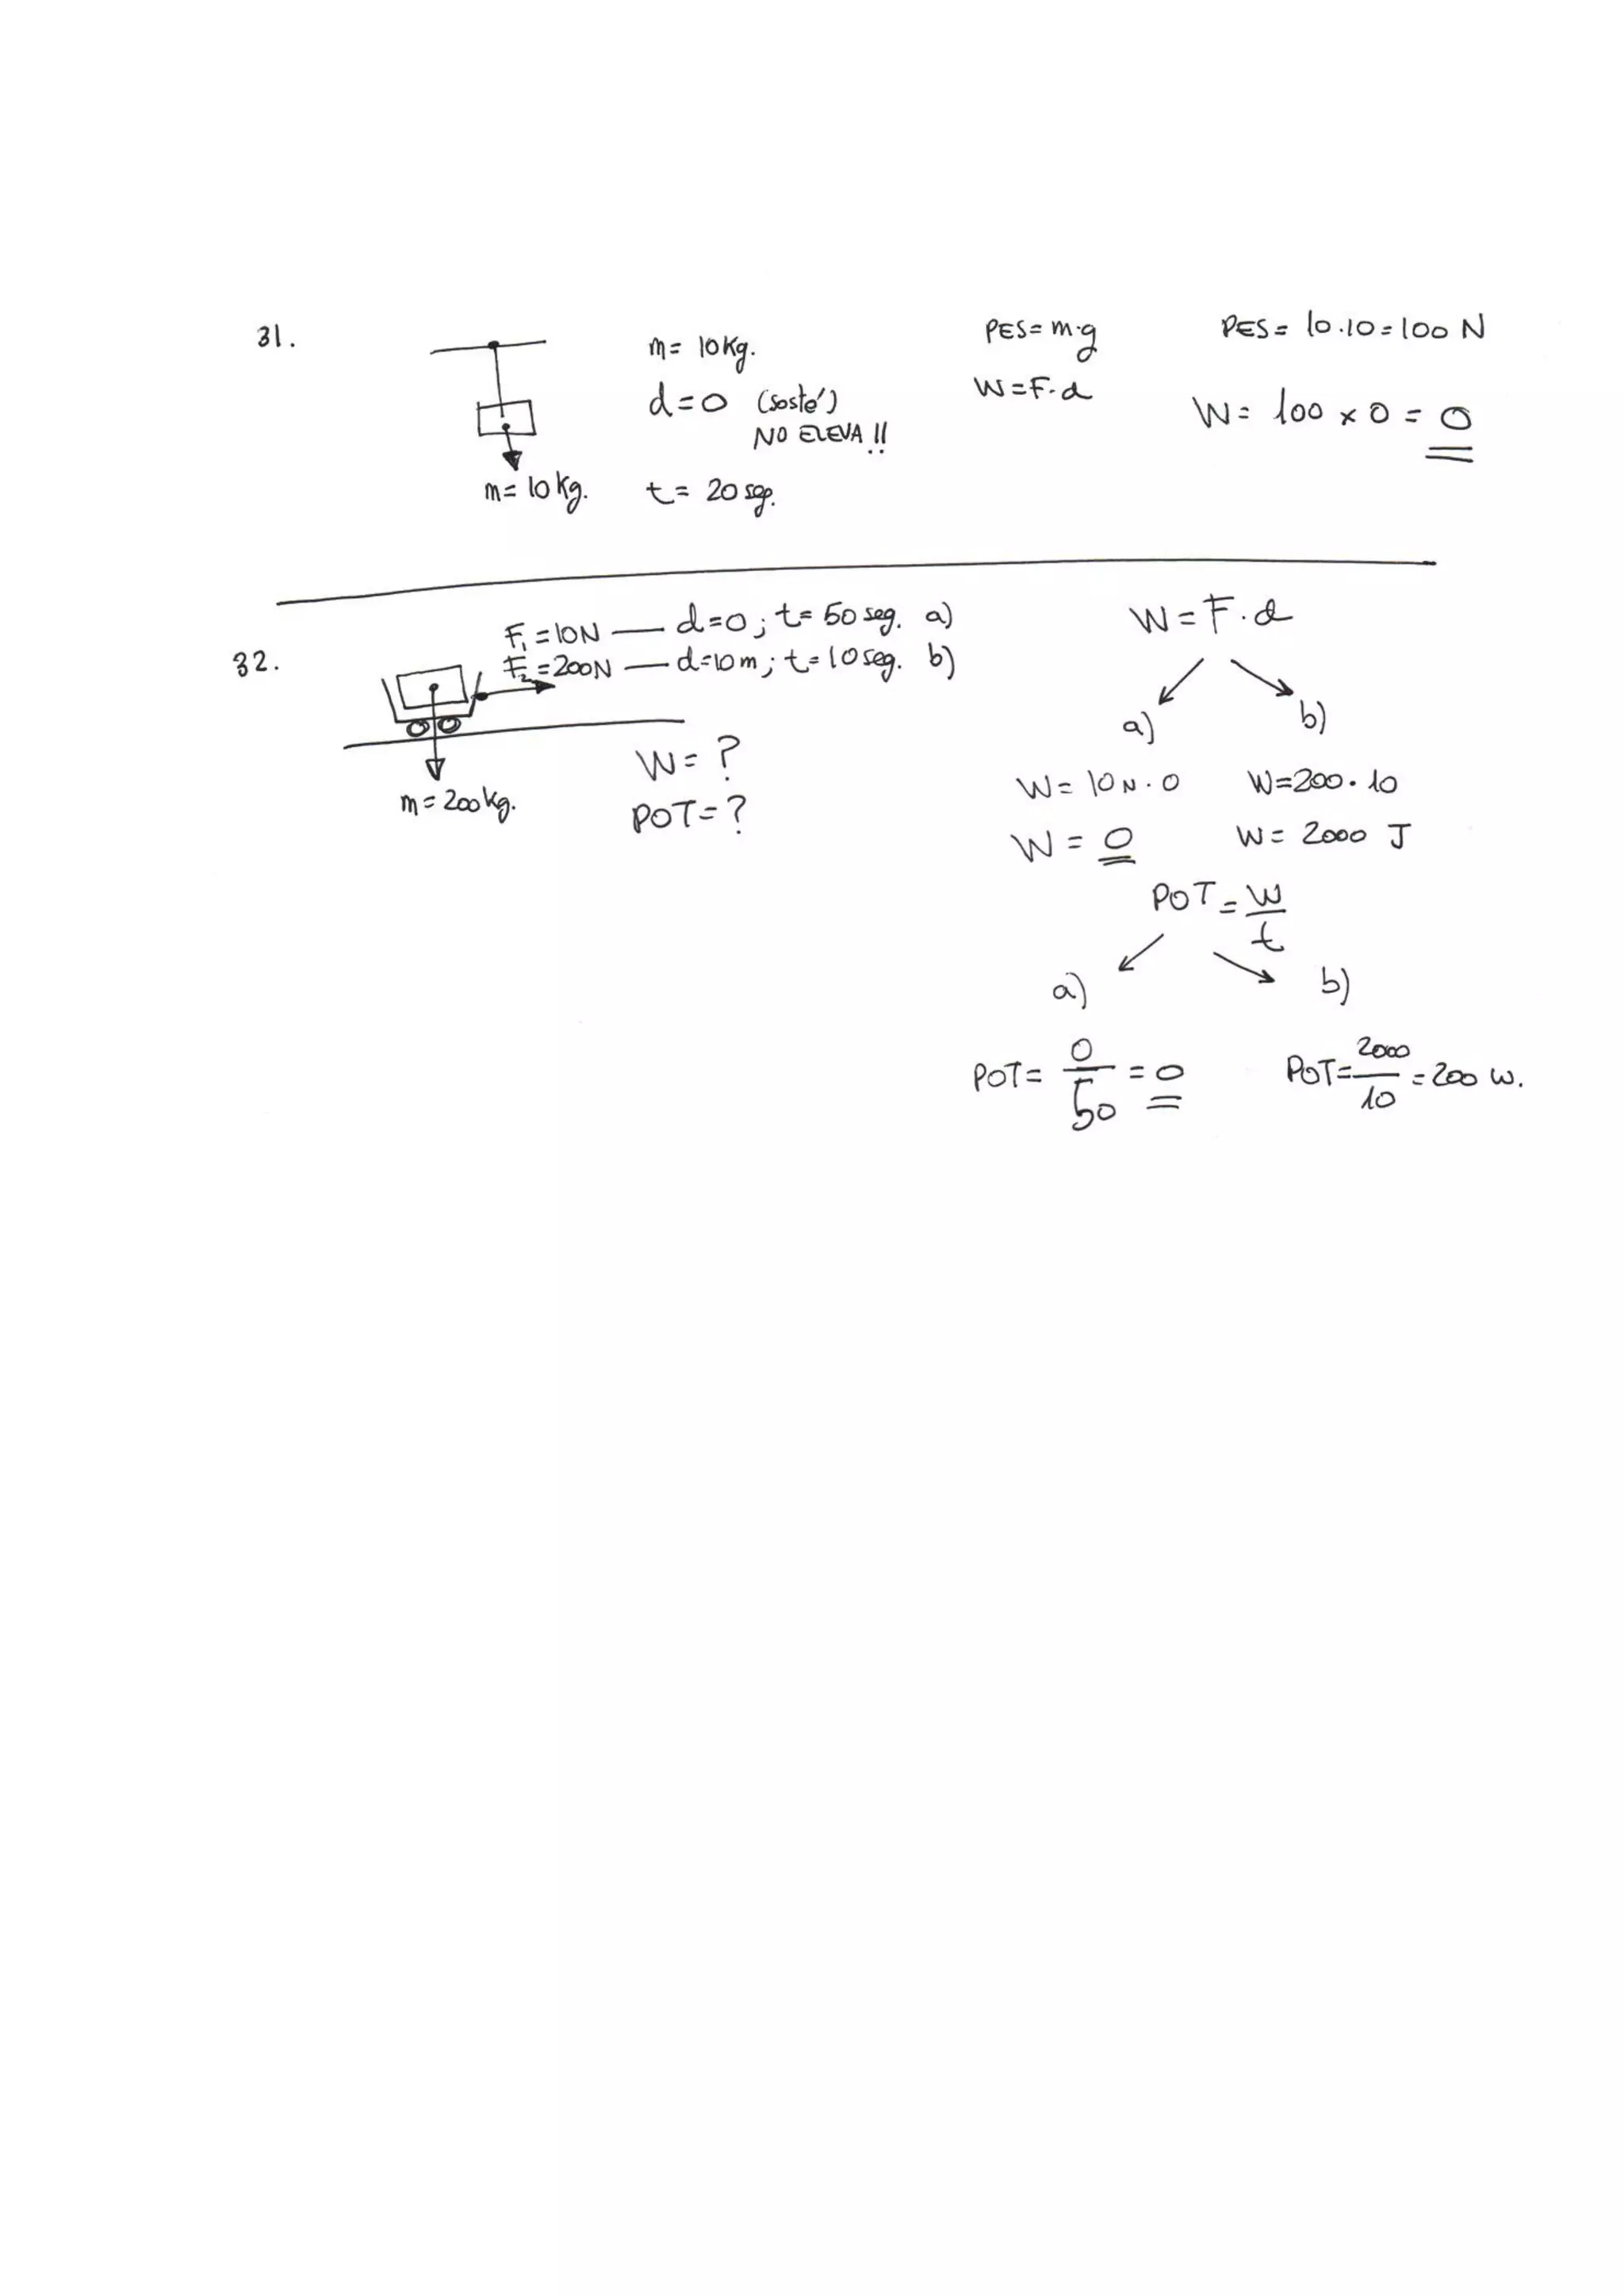 31.
m= 10kg.
d=0 (sosté)
NO ELEVA!!
m= 10kg.
t= 20 seg.
PES= m·g
W=F·d
PES= 10·10=100 N
W= 100 x 0 = 0
32.
F₁=10N — d=0; t= 50 seg. a)
F₂=200N — d=10m; t=10seg. b)
m= 200kg.
W= ?
POT= ?
W=F·d
a) b)
W= 10N·0 W=200·10
W = 0 W= 2000 J
POT = W/t
a) b)
POT= 0/50 = 0 POT= 2000/10 = 200 W.